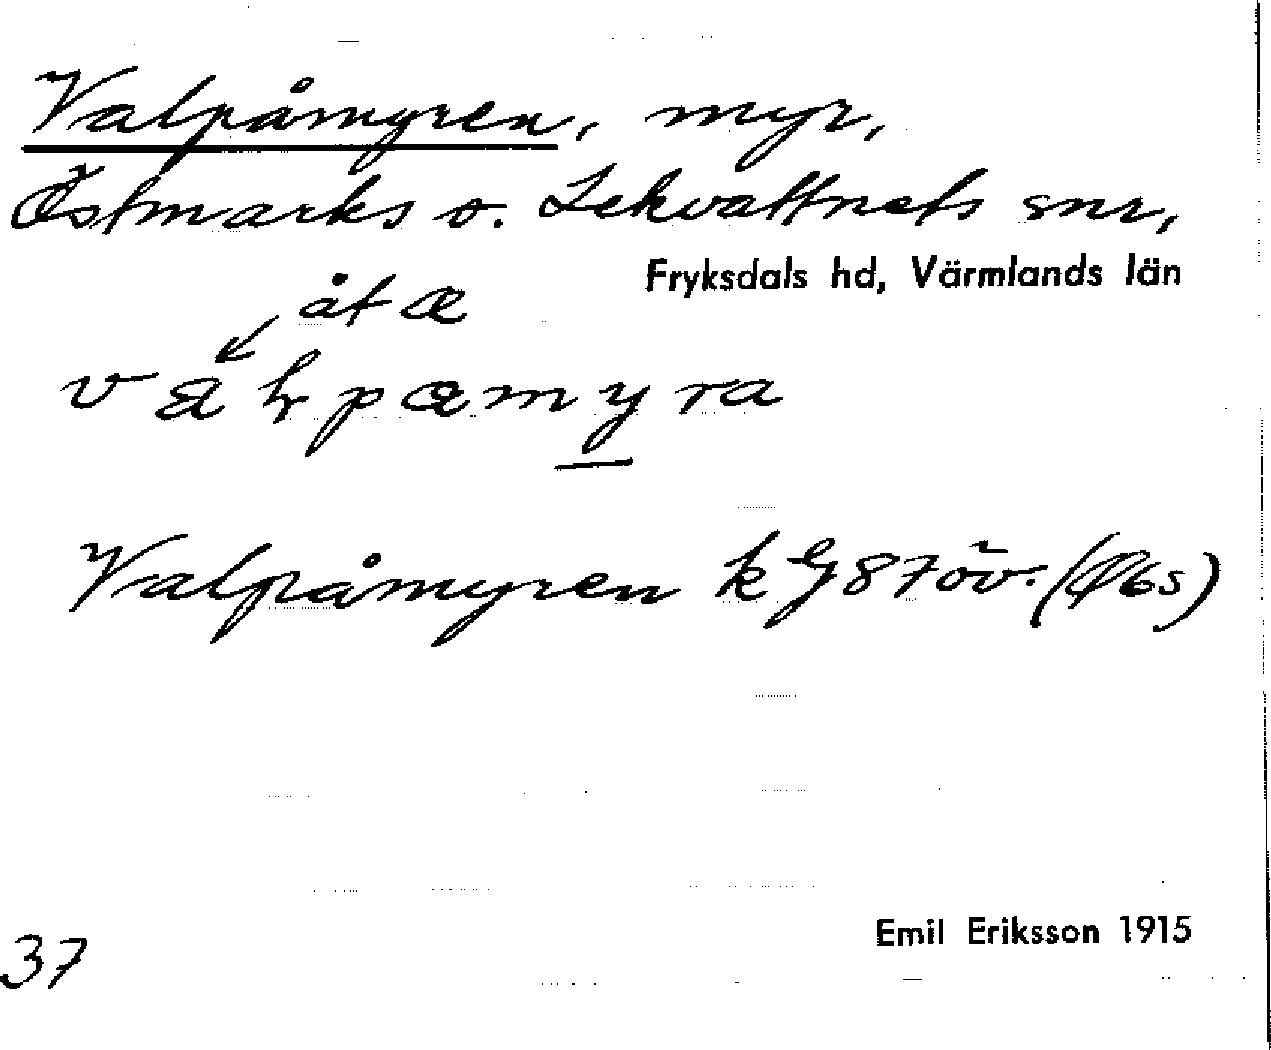 Valpåmyren, myr,
Östmarks o. Lekvattnets snr,
Fryksdals hd, Värmlands län
åt æ
v a l p æ m y r a
Valpåmyren k eg 87 öv. (Ö6s)
Emil Eriksson 1915
37